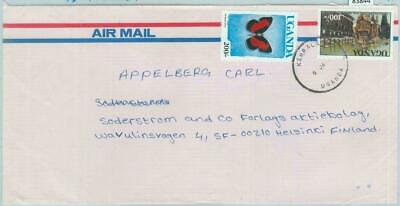 83844
AIR MAIL
UGANDA
200/-
100/-
UGANDA
UGANDA
APPELBERG CARL
Soderstrom and Co Forlags aktiebolag,
Wavulinsvagen 4, SF-00210 Helsinki Finland.